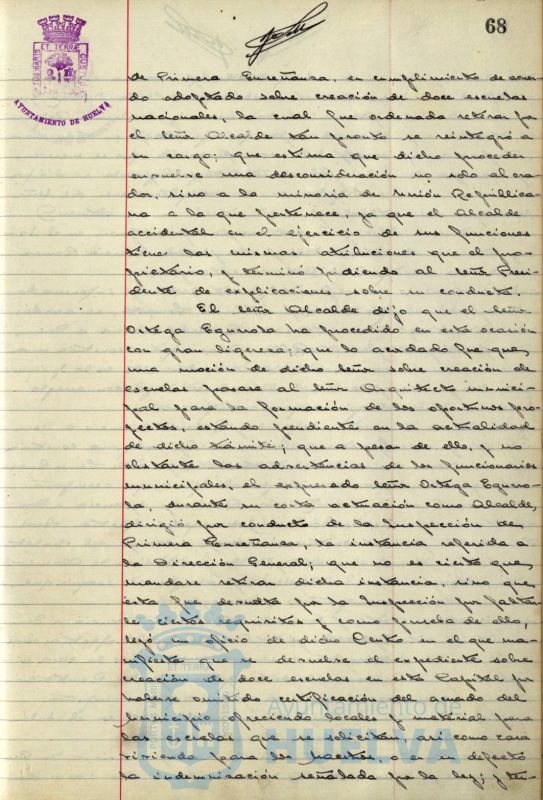 68
AYUNTAMIENTO DE HUELVA
de Primera Enseñanza, en cumplimiento de acuer-
do adoptado sobre creación de doce escuelas
nacionales, la cual fue ordenada retirar por
el señor Alcalde tan pronto se reintegró a
su cargo; que estima que dicho proceder
envuelve una desconsideración no solo al ora-
dor, sino a la minoria de Unión Republica-
na a la que pertenece, ya que el Alcalde
accidental en el ejercicio de sus funciones
tiene las mismas atribuciones que el pro-
pietario, y terminó pidiendo al señor Presi-
dente de explicaciones sobre su conducta.
El señor Alcalde dijo que el señor
Ortega Egurrola ha procedido en esta ocasión
con gran ligereza; que lo acordado fue que
una moción de dicho señor sobre creación de
escuelas pasara al señor Arquitecto munici-
pal para la formación de los oportunos pro-
yectos, estando pendiente en la actualidad
de dicho trámite; que a pesar de ello, y no
obstante las advertencias de los funcionarios
municipales, el expresado señor Ortega Egurro-
la, durante su corta actuación como Alcalde,
dirigió por conducto de la Inspección de
Primera Enseñanza, la instancia referida a
la Dirección General; que no es cierto que
mandase retirar dicha instancia, sino que
esta fue devuelta por la Inspección por faltar-
le ciertos requisitos y como prueba de ello,
leyó un oficio de dicho Centro en el que ma-
nifiesta que se devuelve el expediente sobre
creación de doce escuelas en esta Capital por
haberse omitido certificación del acuerdo del
Municipio ofreciendo locales y material para
las escuelas que se solicitan, así como casa
vivienda para los maestros o en su defecto
la indemnización señalada por la ley; y ter-
Ayuntamiento de
HUELVA